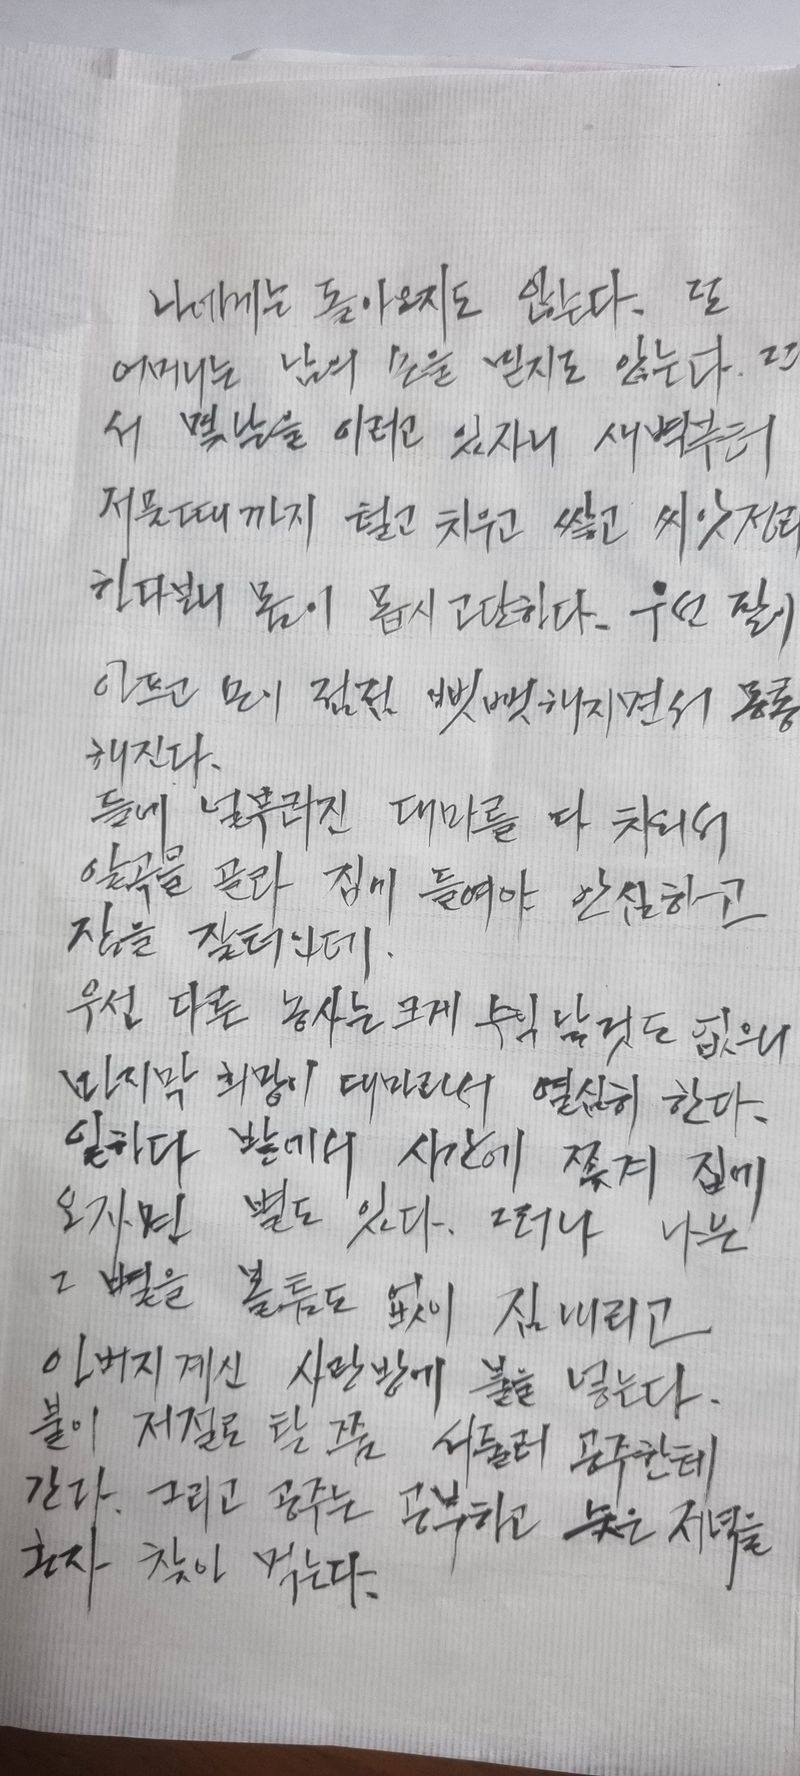 나에게는 돌아오지도 않는다. 또
어머니는 남의 손을 믿지도 않는다.
서 몇날을 이러고 있자니 새벽부터
저물때까지 털고 치우고 쌓고 씨앗정리
한다보니 몸이 몹시 고단하다. 우선 팔이
아프고 손이 점점 뻣뻣해지면서 퉁퉁
해진다.
들에 널부러진 대마를 다 치워서
알곡을 골라 집에 들여야 안심하고
잠을 잘터인데.
우선 다른 농사는 크게 수익 날것도 없으니
마지막 희망이 대마라서 열심히 한다.
일하다 밭에서 시간에 쫓겨 집에
오자면 별도 있다. 그러나 나는
그 별을 볼틈도 없이 짐 내리고
아버지 계신 사랑방에 불을 넣는다.
불이 저절로 탈 쯤 서둘러 공주한테
간다. 그리고 공주는 공부하고 늦은 저녁을
혼자 찾아 먹는다.